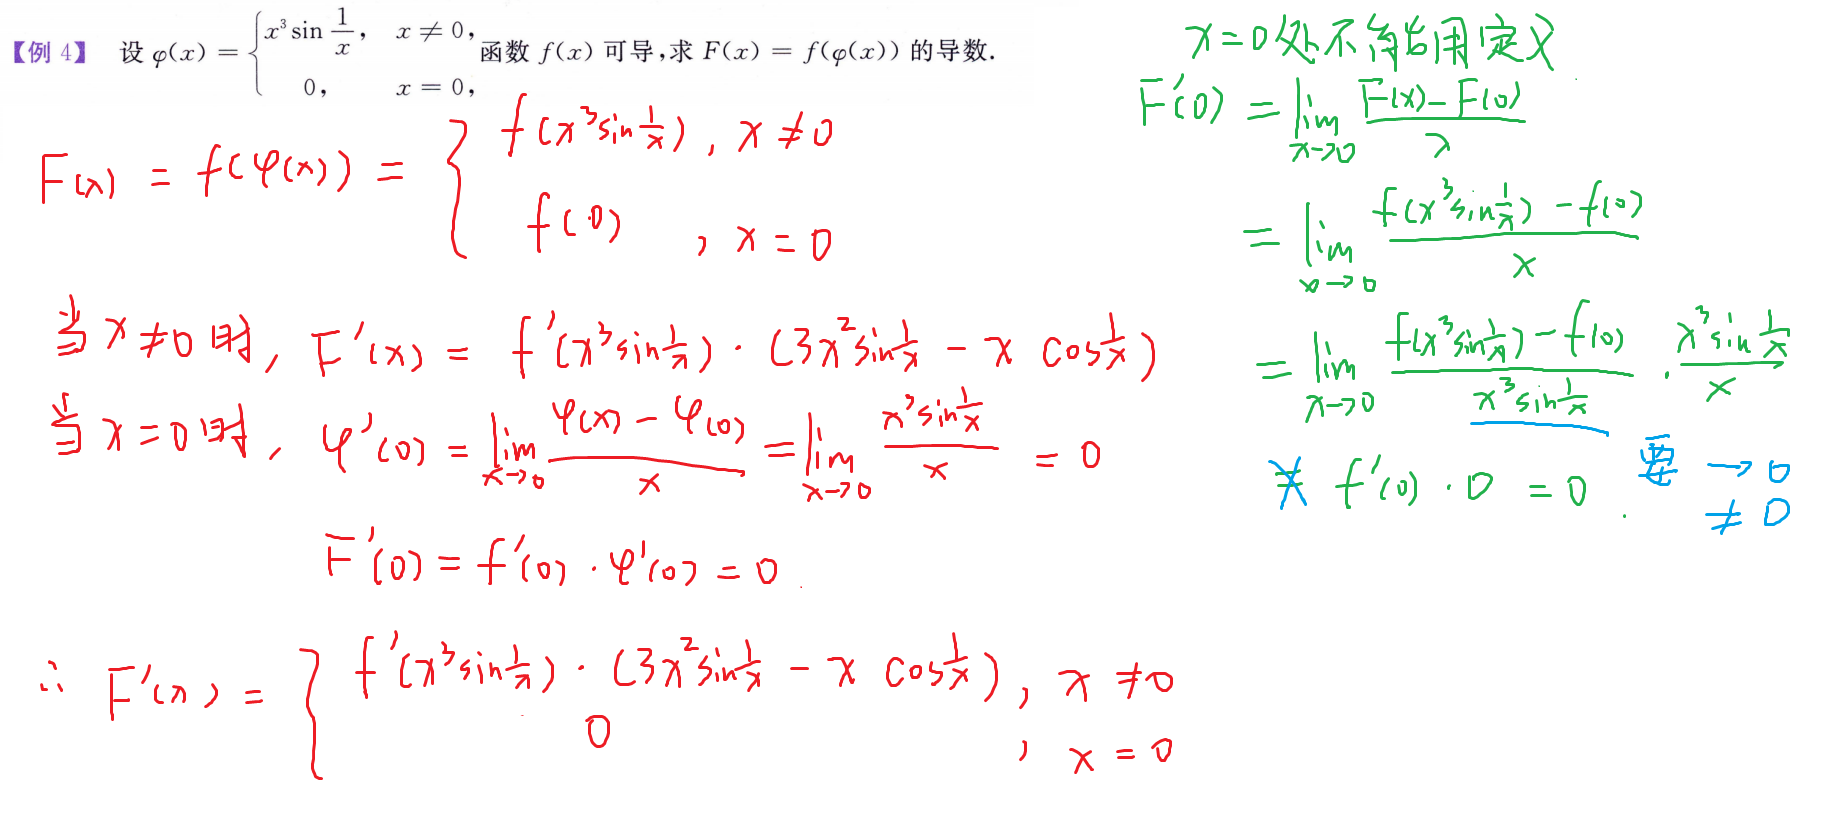 【例 4】 设 φ(x) = { x³ sin 1/x, x ≠ 0, 0, x = 0, 函数 f(x) 可导,求 F(x) = f(φ(x)) 的导数.
F(x) = f(φ(x)) = { f(x³sin 1/x), x ≠ 0
f(0), x = 0
当 x≠0 时, F'(x) = f'(x³sin 1/x) · (3x²sin 1/x − x cos 1/x)
当 x=0 时, φ'(0) = lim x→0 (φ(x) − φ(0))/x = lim x→0 (x³sin 1/x)/x = 0
F'(0) = f'(0) · φ'(0) = 0.
∴ F'(x) = { f'(x³sin 1/x) · (3x²sin 1/x − x cos 1/x), x ≠ 0
0, x = 0
x=0处不能用定义
F'(0) = lim x→0 (F(x) − F(0))/x
= lim x→0 (f(x³sin 1/x) − f(0))/x
= lim x→0 (f(x³sin 1/x) − f(0))/(x³sin 1/x) · (x³sin 1/x)/x
≠ f'(0) · 0 = 0. 要 →0
≠ 0